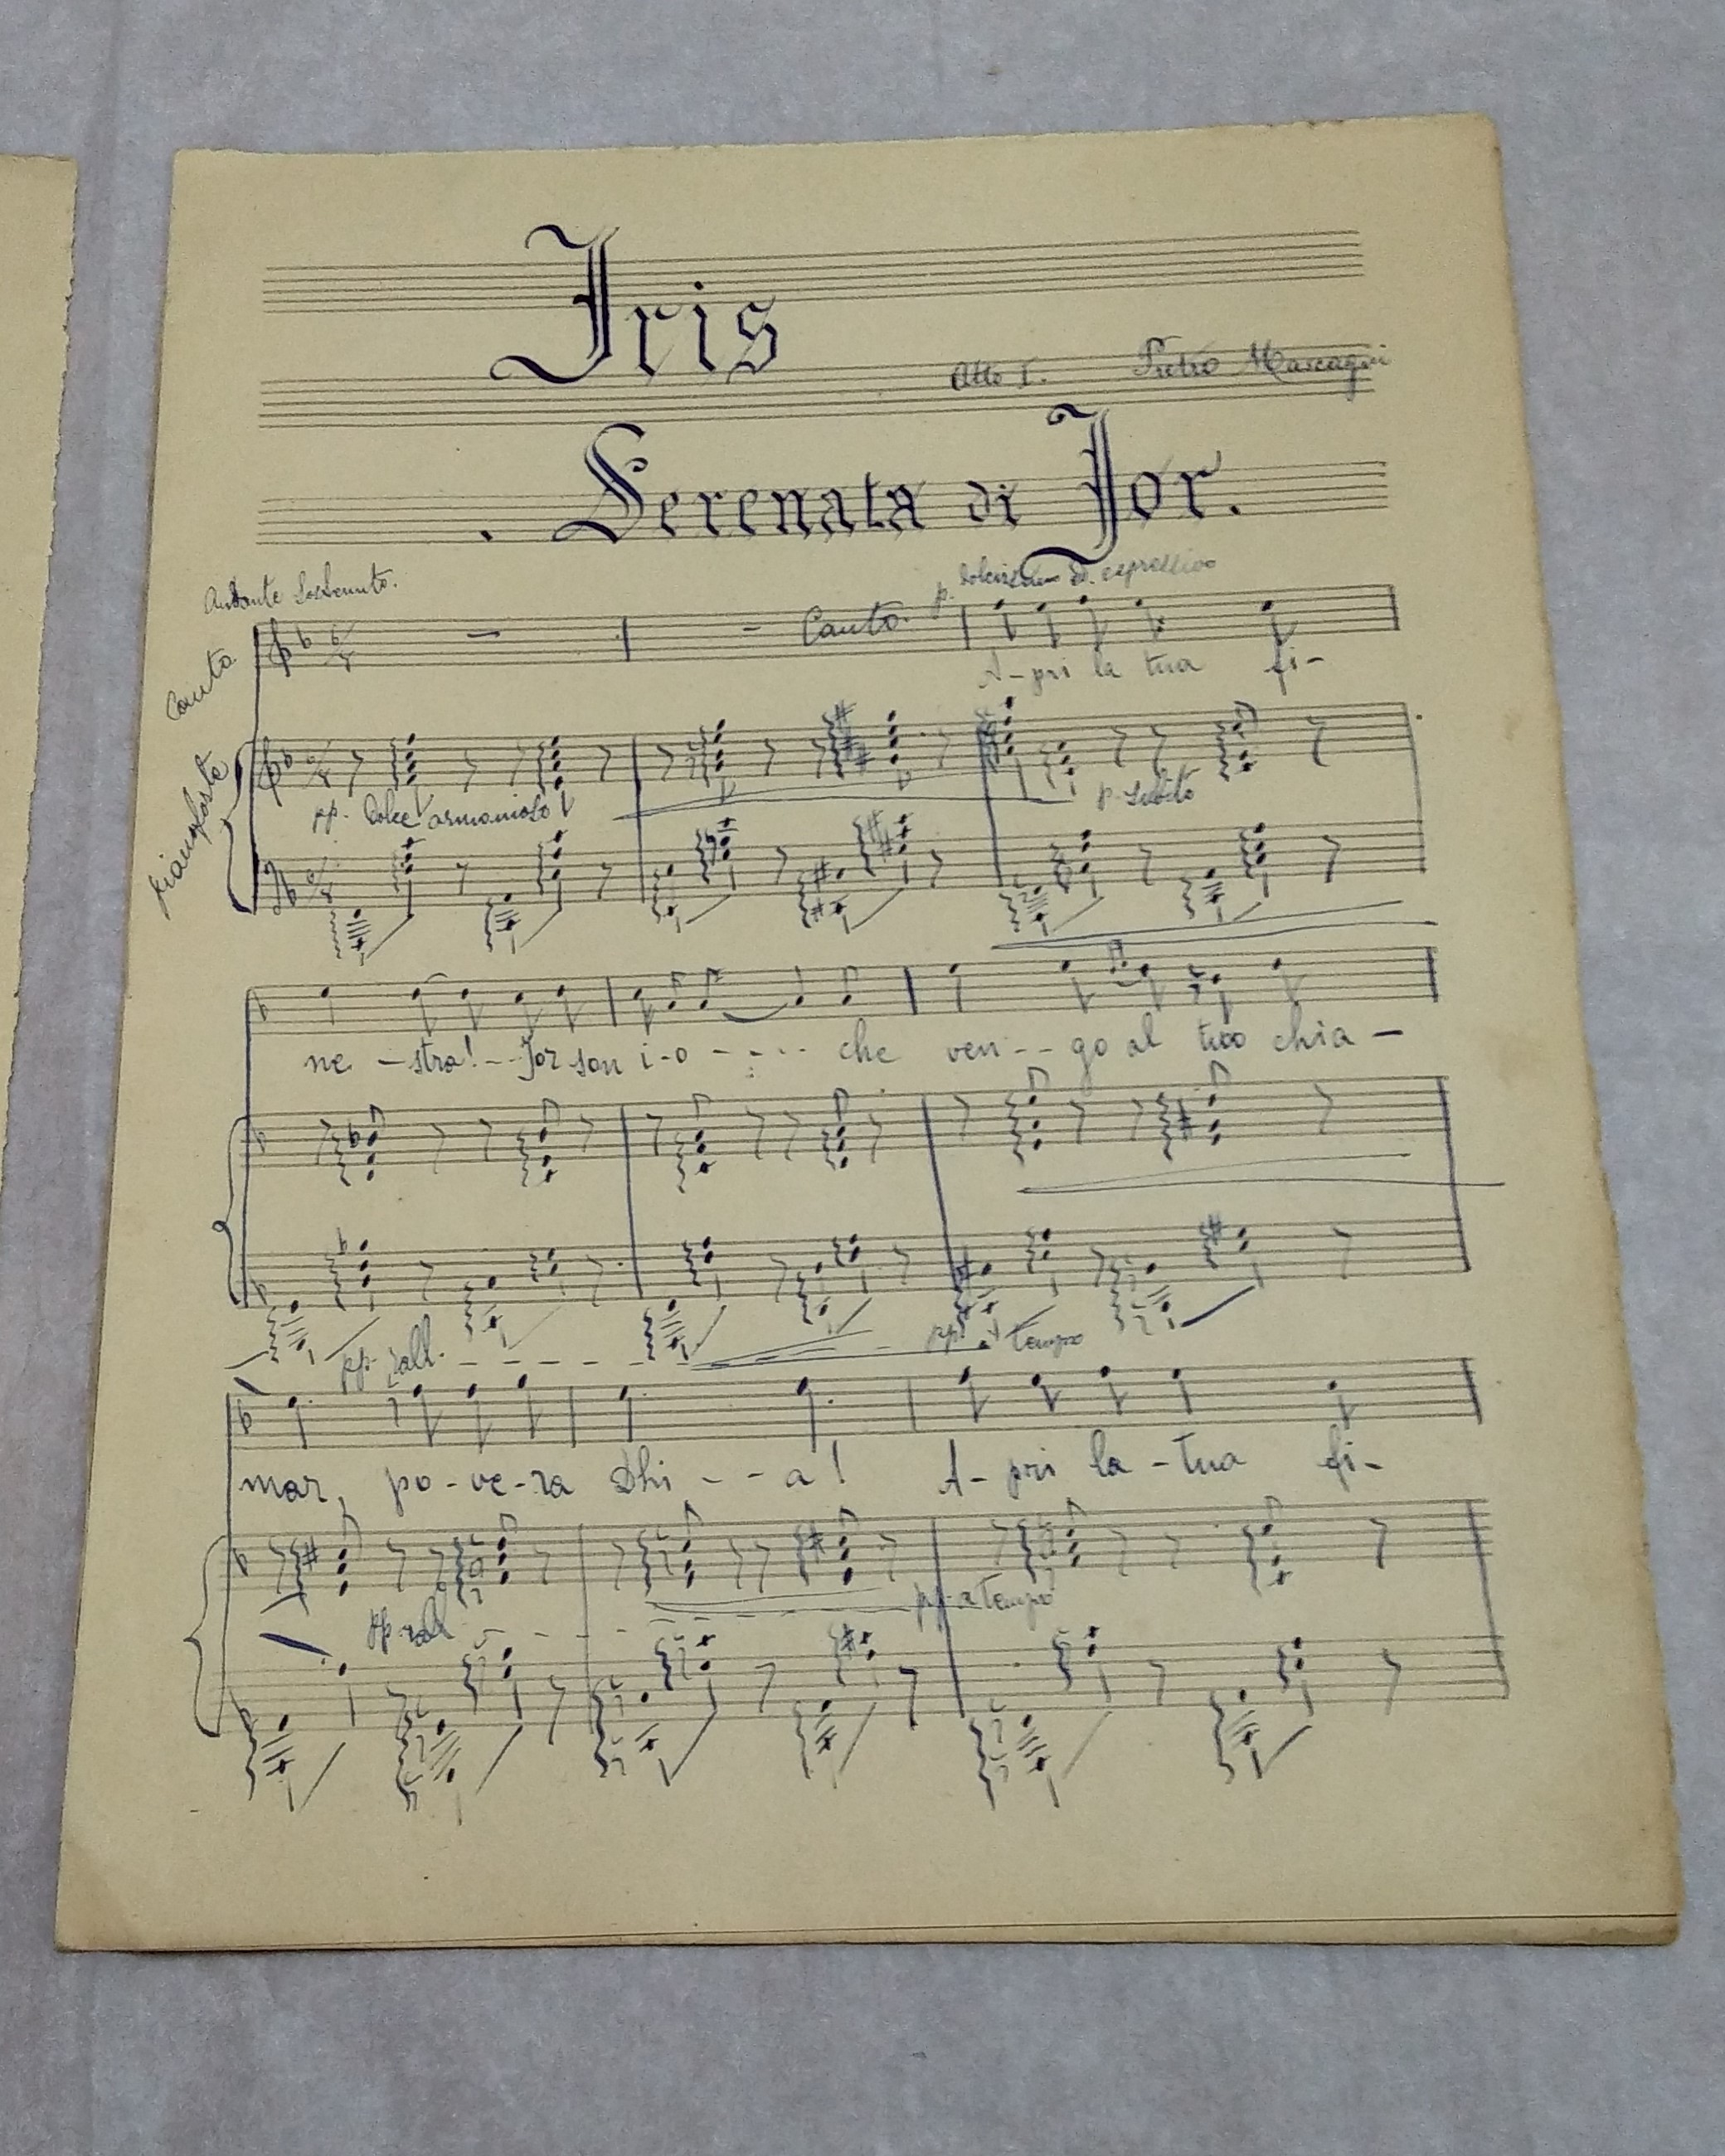 Iris
Atto I. Pietro Mascagni
Serenata di Jor.
Andante Sostenuto.
p. dolcissimo ed espressivo
Canto. Canto.
A-pri la tua fi-
Pianoforte
pp. Dolce armonioso
p. subito
ne - stra! -- Jor son i-o - - - - che ven - - go al tuo chia -
pp. rall. - - - - - - pp. a tempo
mar, po-ve-ra Dhi - - a! A- pri la - tua fi-
pp. rall - - - - pp. a tempo